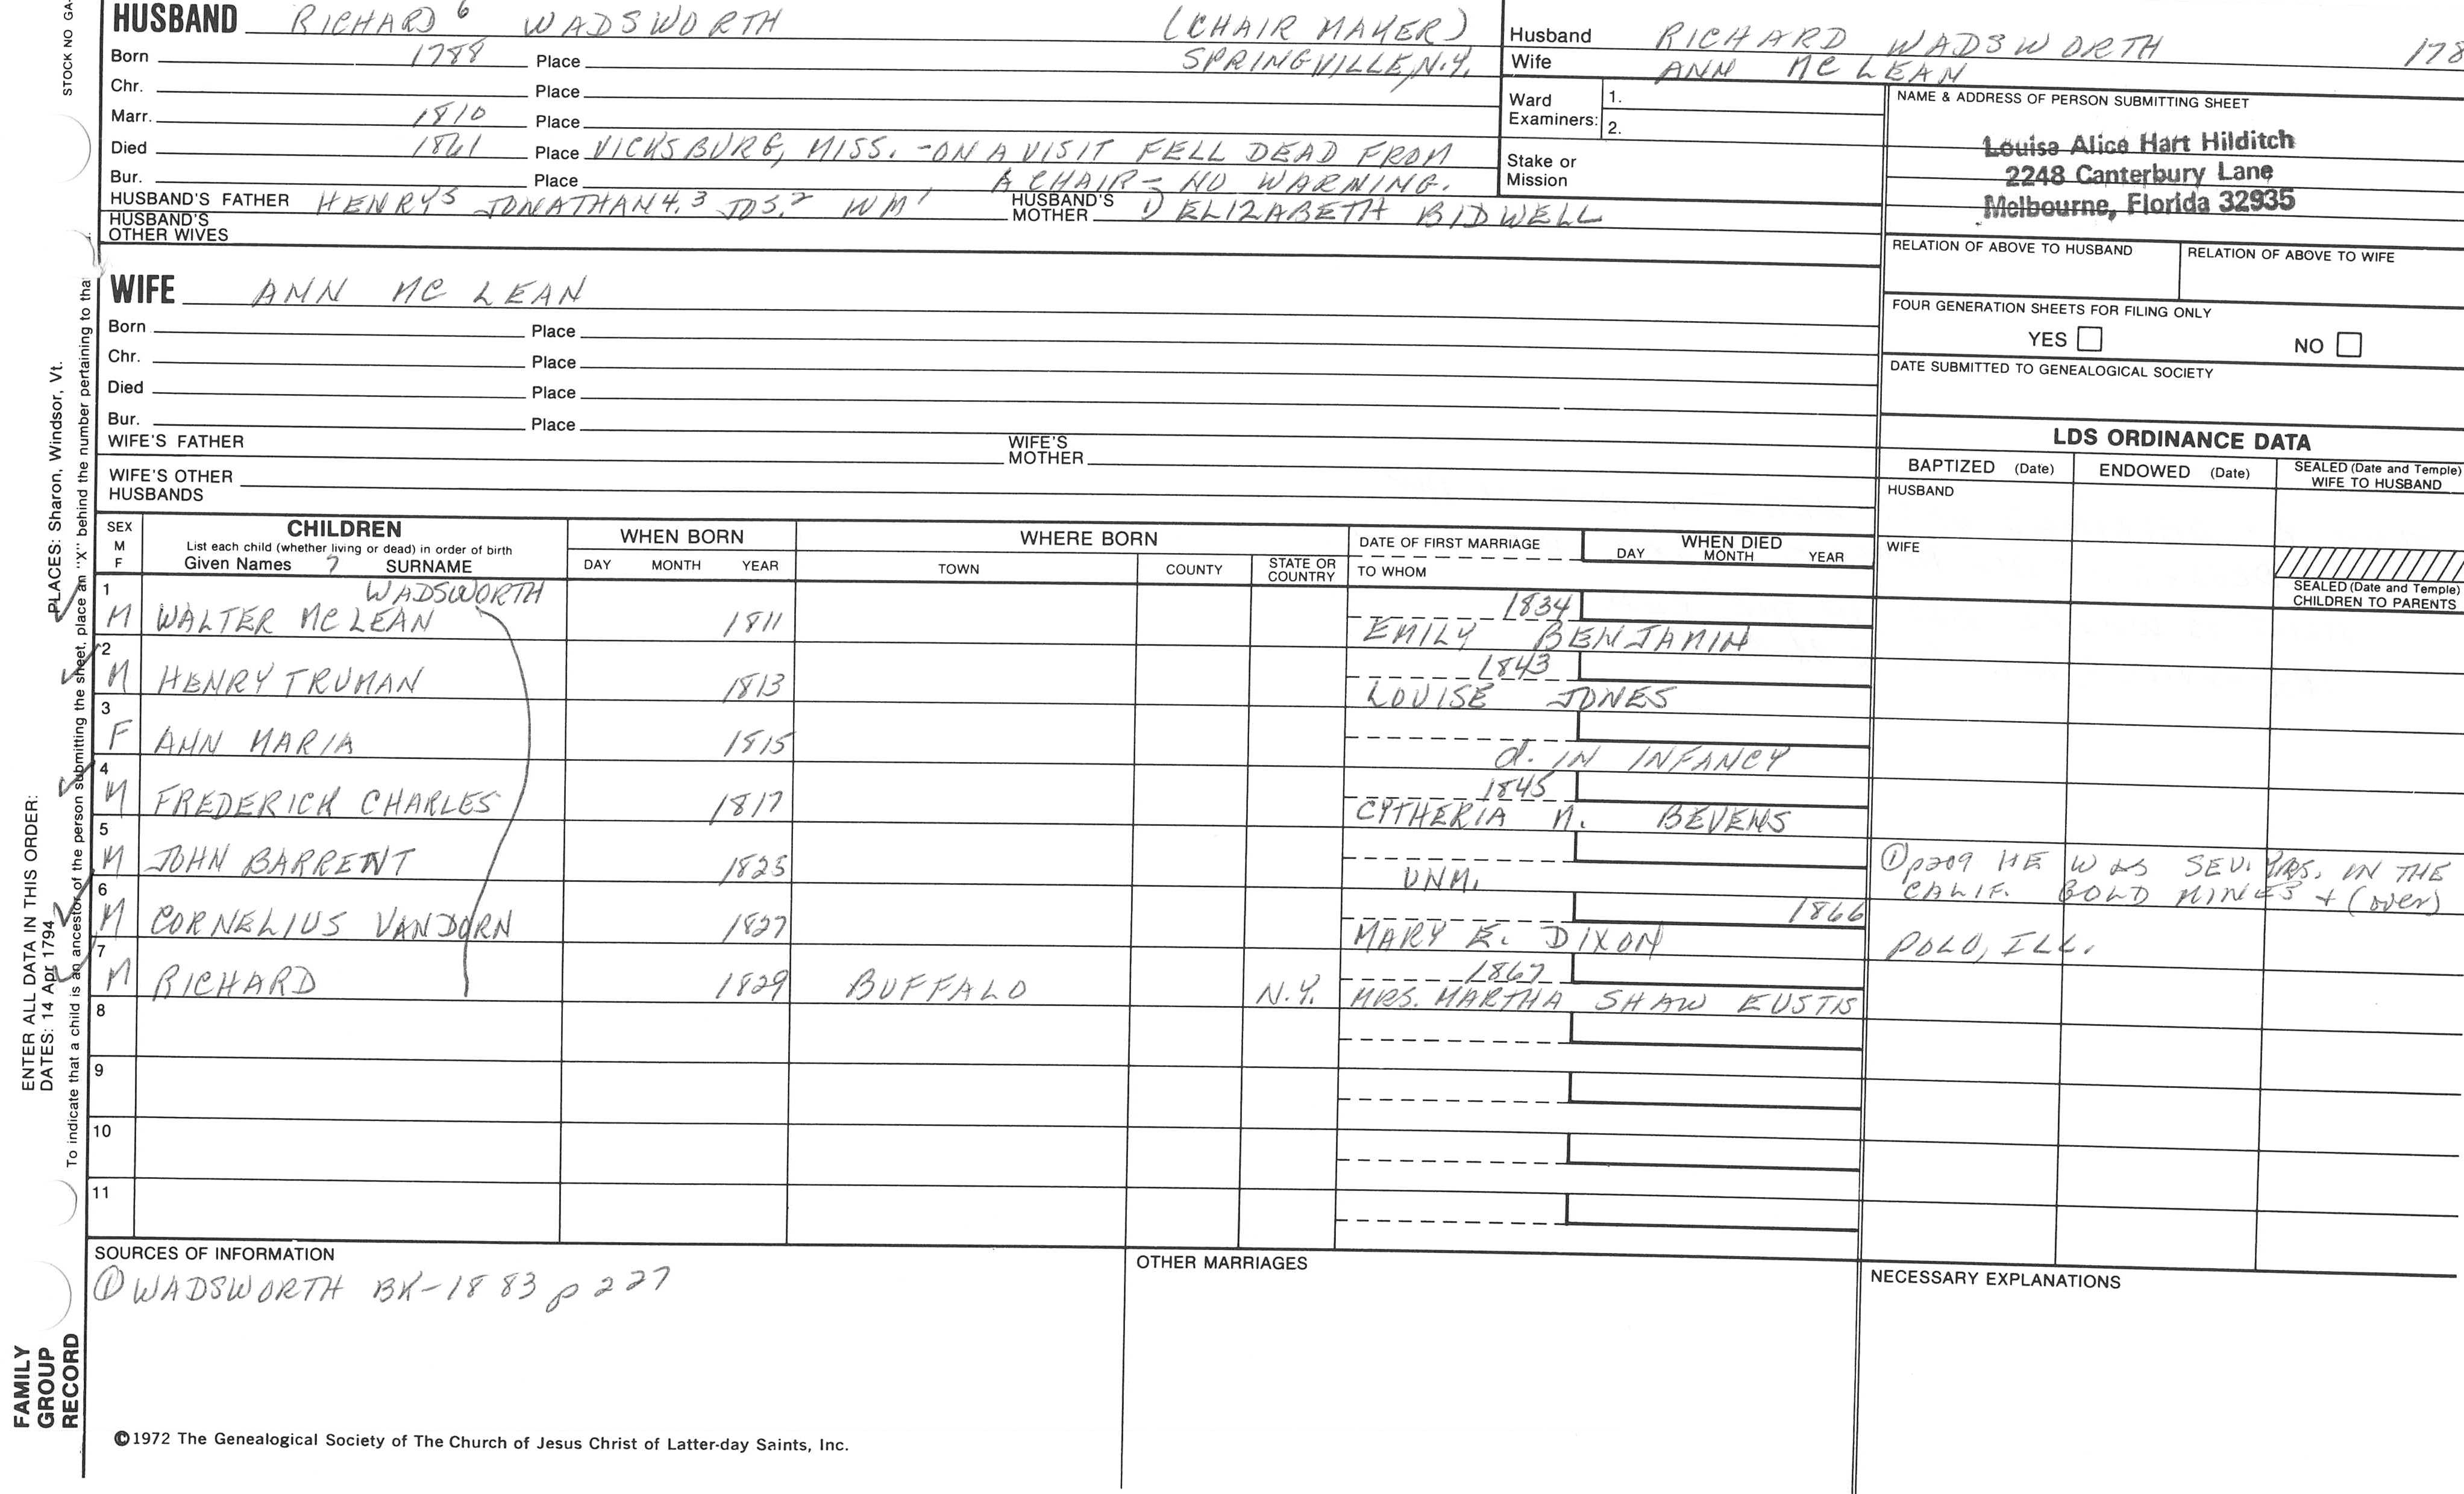 STOCK NO GA-
HUSBAND RICHARD 6 WADSWORTH (CHAIR MAKER)
Born 1788 Place SPRINGVILLE, N.Y.
Chr. Place
Marr. 1810 Place
Died 1861 Place VICKSBURG, MISS. - ON A VISIT FELL DEAD FROM
Bur. Place A CHAIR - NO WARNING.
HUSBAND'S FATHER HENRY5 JONATHAN4,3 JOS.2 WM1 HUSBAND'S MOTHER 1) ELIZABETH BIDWELL
HUSBAND'S OTHER WIVES
Husband RICHARD WADSWORTH 178
Wife ANN MC LEAN
Ward Examiners: 1.
2.
Stake or Mission
NAME & ADDRESS OF PERSON SUBMITTING SHEET
Louisa Alice Hart Hilditch
2248 Canterbury Lane
Melbourne, Florida 32935
RELATION OF ABOVE TO HUSBAND RELATION OF ABOVE TO WIFE
FOUR GENERATION SHEETS FOR FILING ONLY
YES NO
DATE SUBMITTED TO GENEALOGICAL SOCIETY
WIFE ANN MC LEAN
Born Place
Chr. Place
Died Place
Bur. Place
WIFE'S FATHER WIFE'S MOTHER
WIFE'S OTHER HUSBANDS
LDS ORDINANCE DATA
BAPTIZED (Date) ENDOWED (Date) SEALED (Date and Temple) WIFE TO HUSBAND
HUSBAND
WIFE
SEALED (Date and Temple)
CHILDREN TO PARENTS
SEX M F CHILDREN WHEN BORN WHERE BORN DATE OF FIRST MARRIAGE WHEN DIED
List each child (whether living or dead) in order of birth
Given Names ? SURNAME DAY MONTH YEAR TOWN COUNTY STATE OR COUNTRY TO WHOM DAY MONTH YEAR
1 WADSWORTH 1834
M WALTER MC LEAN 1811 EMILY BENJAMIN
2 1843
M HENRY TRUMAN 1813 LOUISE JONES
3
F ANN MARIA 1815 d. IN INFANCY
4 1845
M FREDERICK CHARLES 1817 CYTHERIA M. BEVENS
5
M JOHN BARRENT 1823 UNM. ① p209 HE WAS SEV. YRS. IN THE
CALIF. GOLD MINES + (over)
6 1866
M CORNELIUS VANDORN 1827 MARY E. DIXON POLO, ILL.
7 1867
M RICHARD 1829 BUFFALO N.Y. MRS. MARTHA SHAW EUSTIS
8
9
10
11
SOURCES OF INFORMATION
① WADSWORTH BK-1883 p 227
OTHER MARRIAGES
NECESSARY EXPLANATIONS
©1972 The Genealogical Society of The Church of Jesus Christ of Latter-day Saints, Inc.
FAMILY
GROUP
RECORD
ENTER ALL DATA IN THIS ORDER:
DATES: 14 Apr 1794
PLACES: Sharon, Windsor, Vt.
To indicate that a child is an ancestor of the person submitting the sheet, place an "X" behind the number pertaining to tha